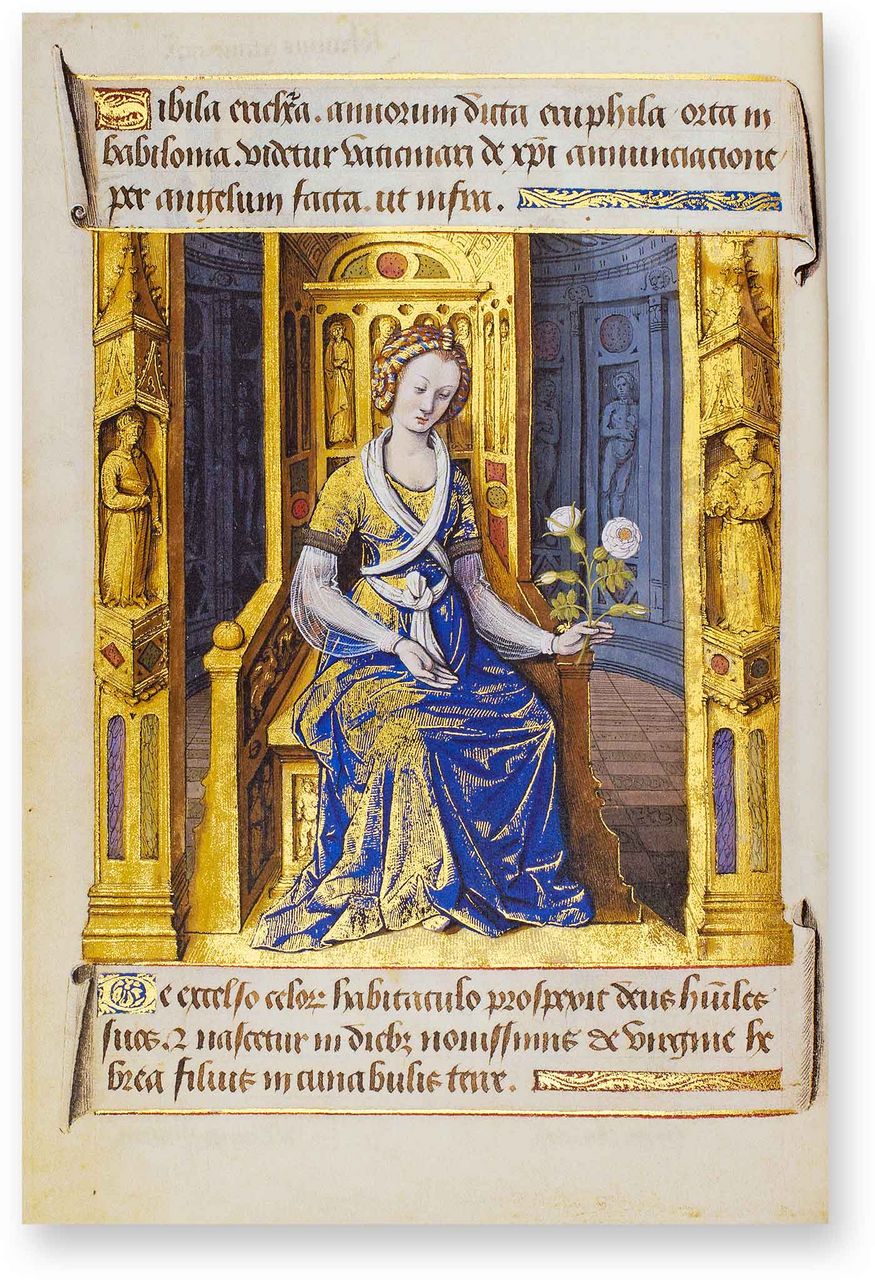 Sibila erichꝛ̃a. annorum dicta eriphila orta in
babilonia. videtur vaticinari de xp̃i annunciacione
per angelum facta. ut infra.
De excelso celoꝝ habitaculo prospexit deus hũiles
suos. ⁊ nascetur in diebꝫ nouissimis de virgine he
brea filius in cunabulis terre.